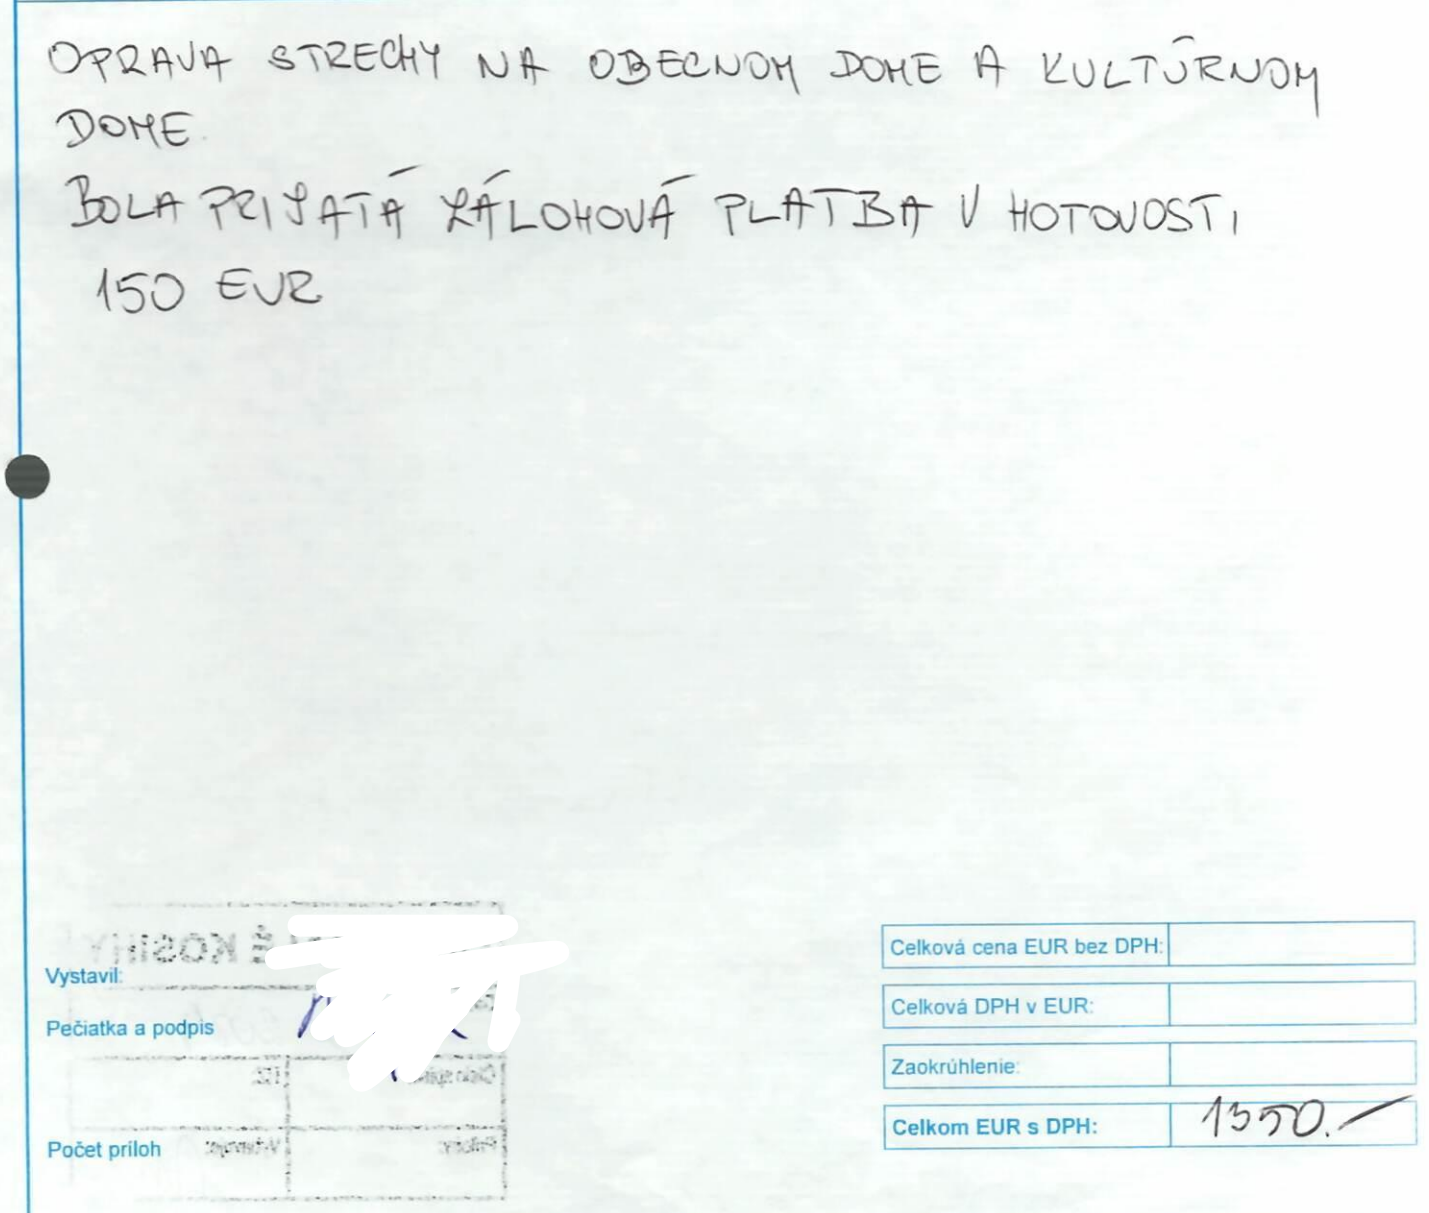 OPRAVA STRECHY NA OBECNOM DOME A KULTÚRNOM
DOME.
BOLA PRIJATÁ ZÁLOHOVÁ PLATBA V HOTOVOSTI
150 EUR
KOSIHY
Vystavil:
Pečiatka a podpis
Počet príloh
Celková cena EUR bez DPH:
Celková DPH v EUR:
Zaokrúhlenie:
Celkom EUR s DPH: 1350.-